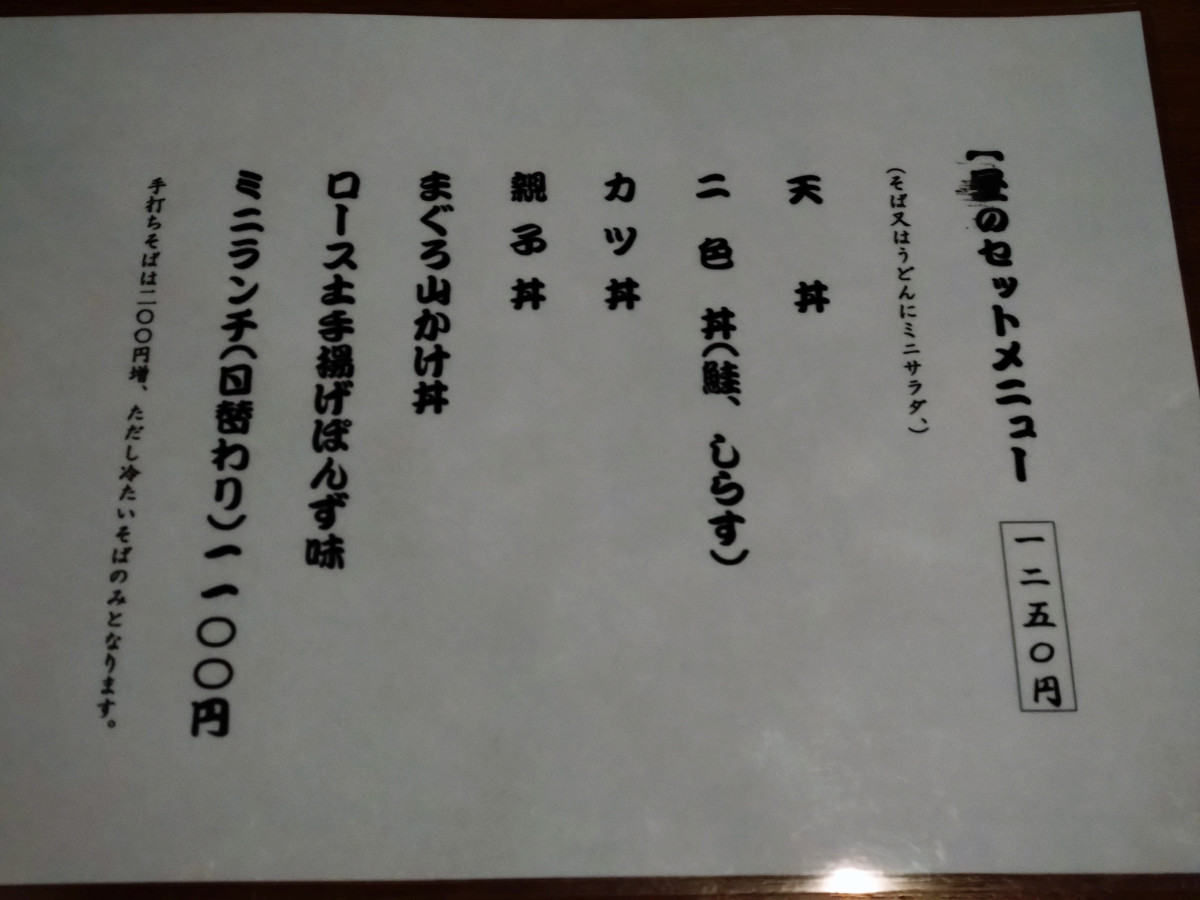 【昼のセットメニュー 一二五〇円
(そば又はうどんにミニサラダ、)
天丼
二色丼(鮭、しらす)
カツ丼
親子丼
まぐろ山かけ丼
ロース土手揚げぽんず味
ミニランチ(日替わり)一一〇〇円
手打ちそばは二〇〇円増、ただし冷たいそばのみとなります。